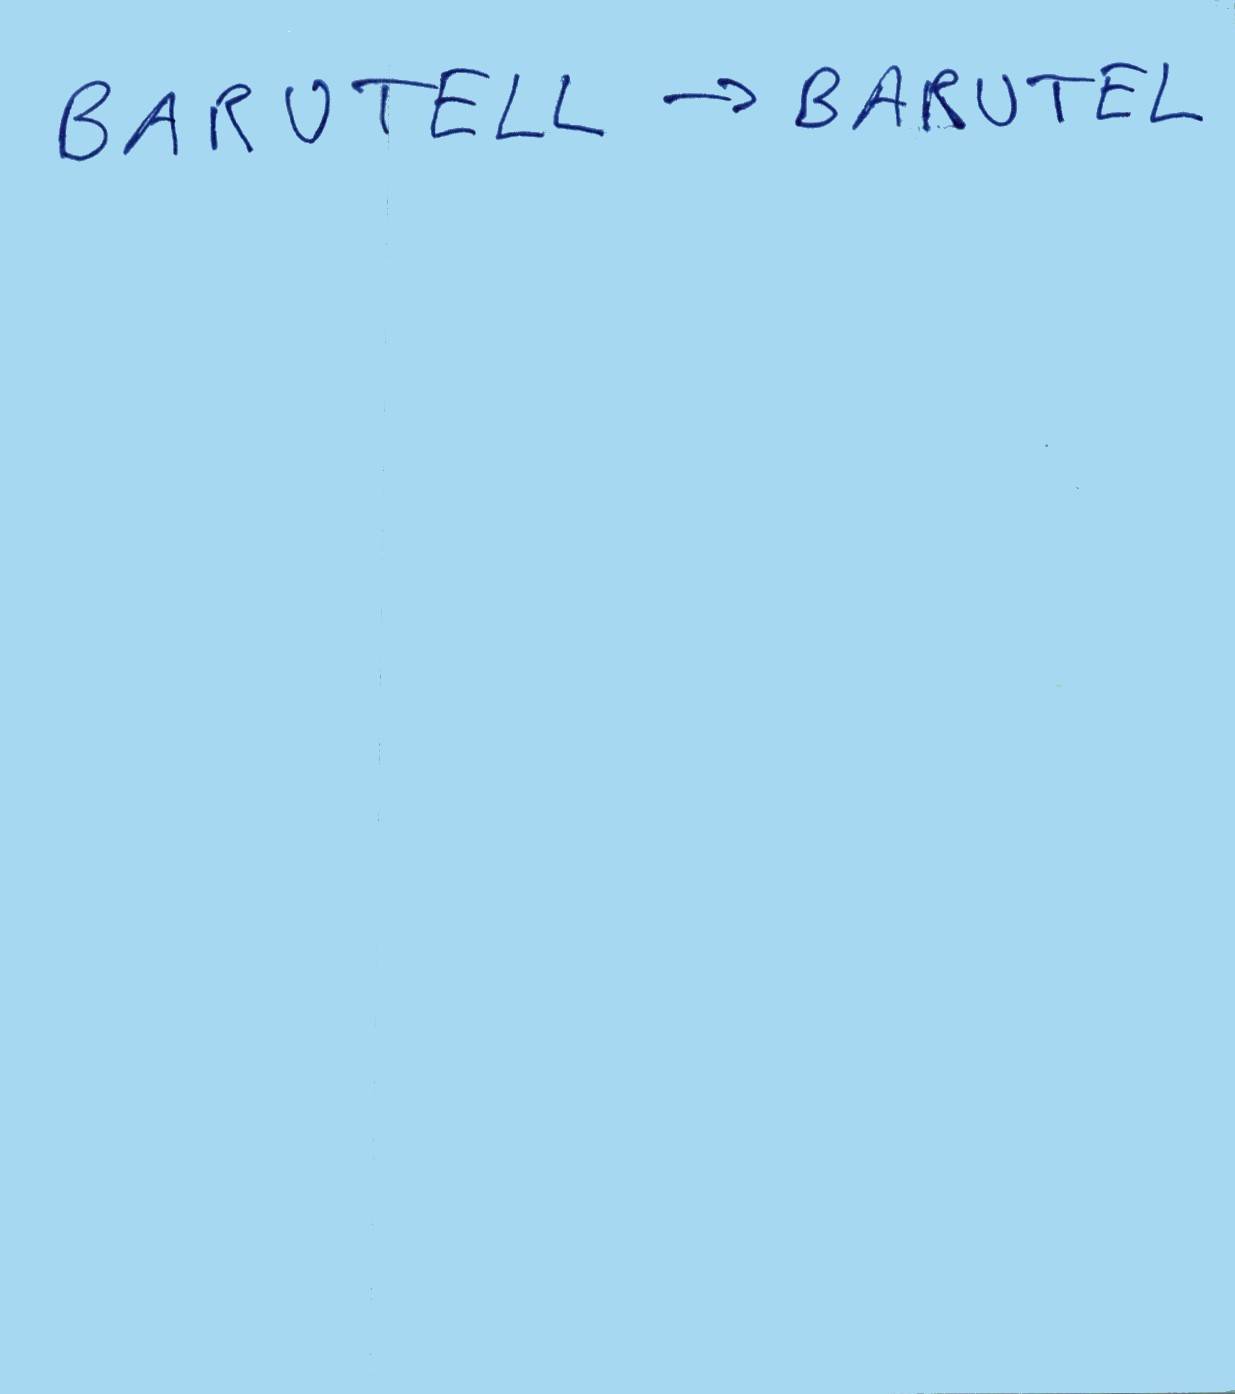 BARUTELL → BARUTEL